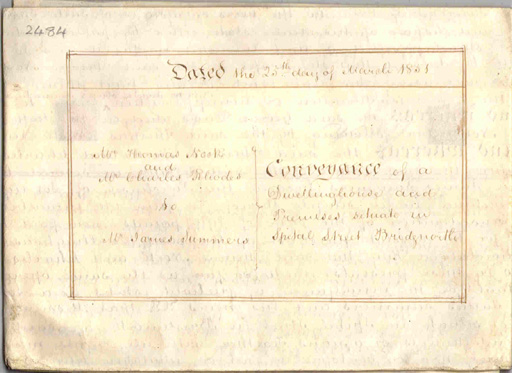 2484
Dated the 25th day of March 1851
Mr Thomas
and
Mr Charles Rhodes
to
Mr James Summers
Conveyance of a
Dwellinghouse and
Premises, situate in
Spital Street Bridgnorth